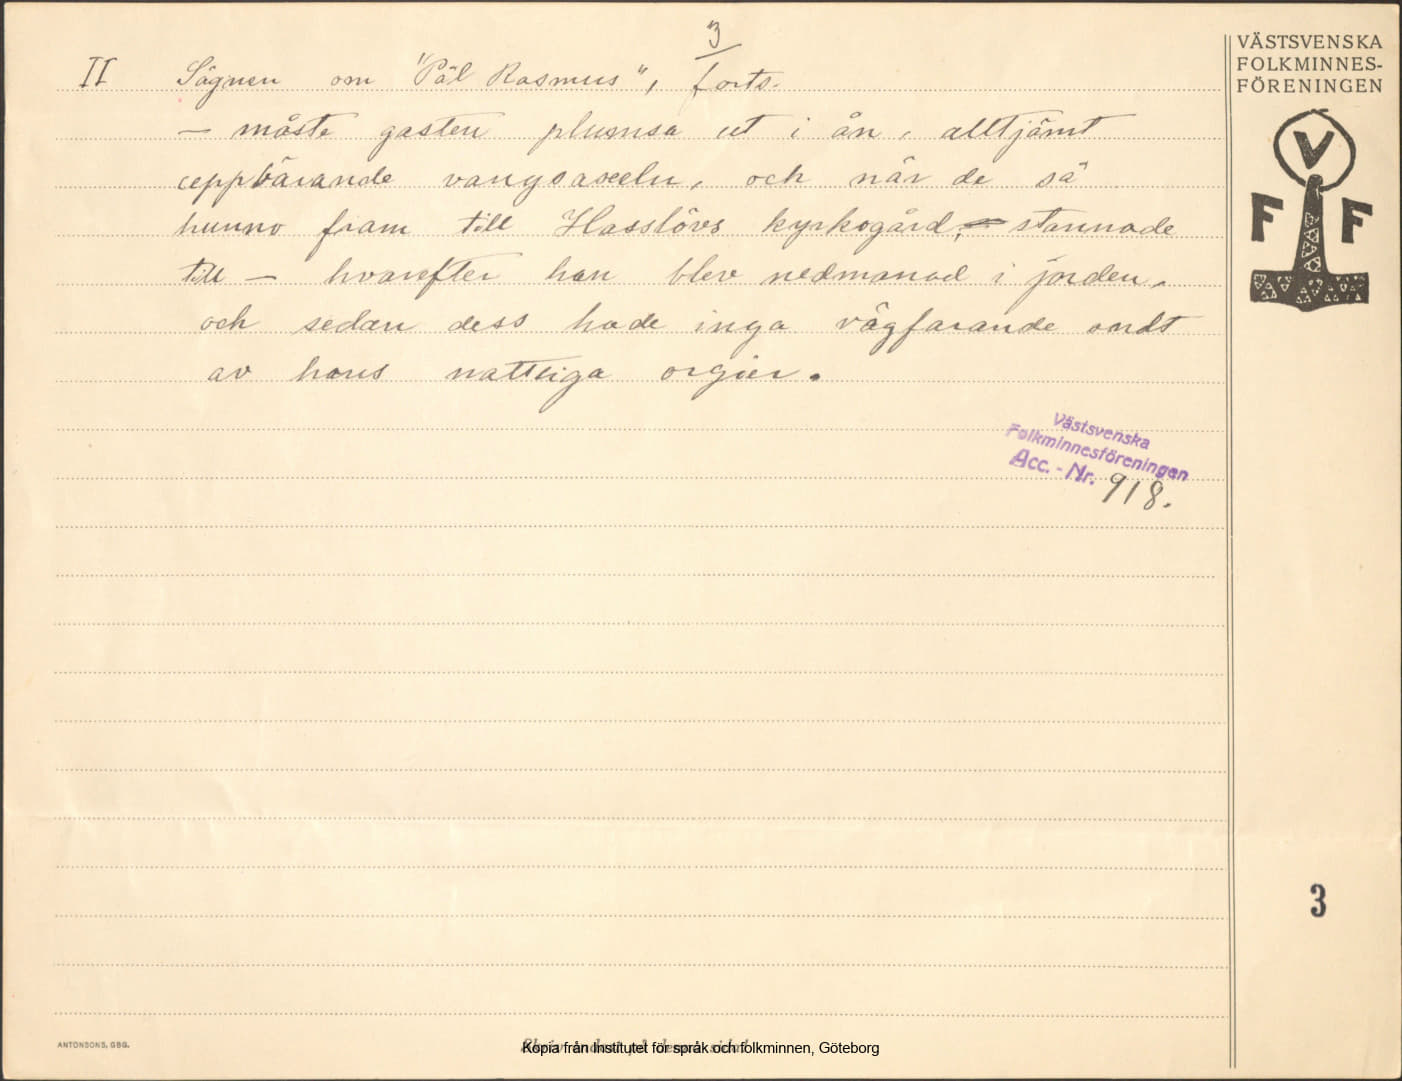 3
II Sägnen om "Pål Rasmus", forts.
— måste gasten plumsa ut i ån, alltjämt
uppbärande vangsaxeln, och när de så
hunno fram till Hasslövs kyrkogård, stannade
till — hvarefter han blev nedmanad i jorden,
och sedan dess hade inga vägfarande ondt
av hans nattliga orgier.
VÄSTSVENSKA
FOLKMINNES-
FÖRENINGEN
V
F F
Västsvenska
Folkminnesföreningen
Acc. - Nr. 918.
3
ANTONSONS, GBG.
Kopia från Institutet för språk och folkminnen, Göteborg